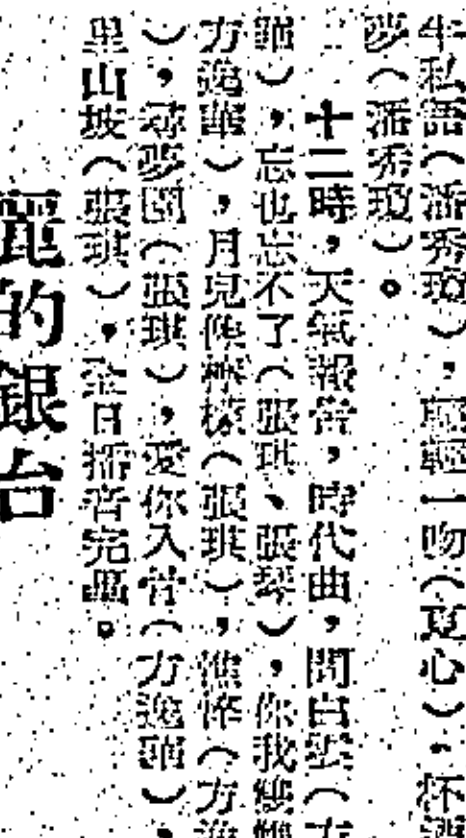 牛私語（潘秀瓊），輕輕一吻（夏心），杯酒
夢（潘秀瓊）。
十二時，天氣報告，時代曲，問白雲（方
華），忘也忘不了（張琪、張琴），你我戀
方逸華），月兒像檸檬（張琪），憔悴（方逸
），尋夢園（張琪），愛你入骨（方逸華），
里山坡（張琪），全日播音完畢。
麗的銀台